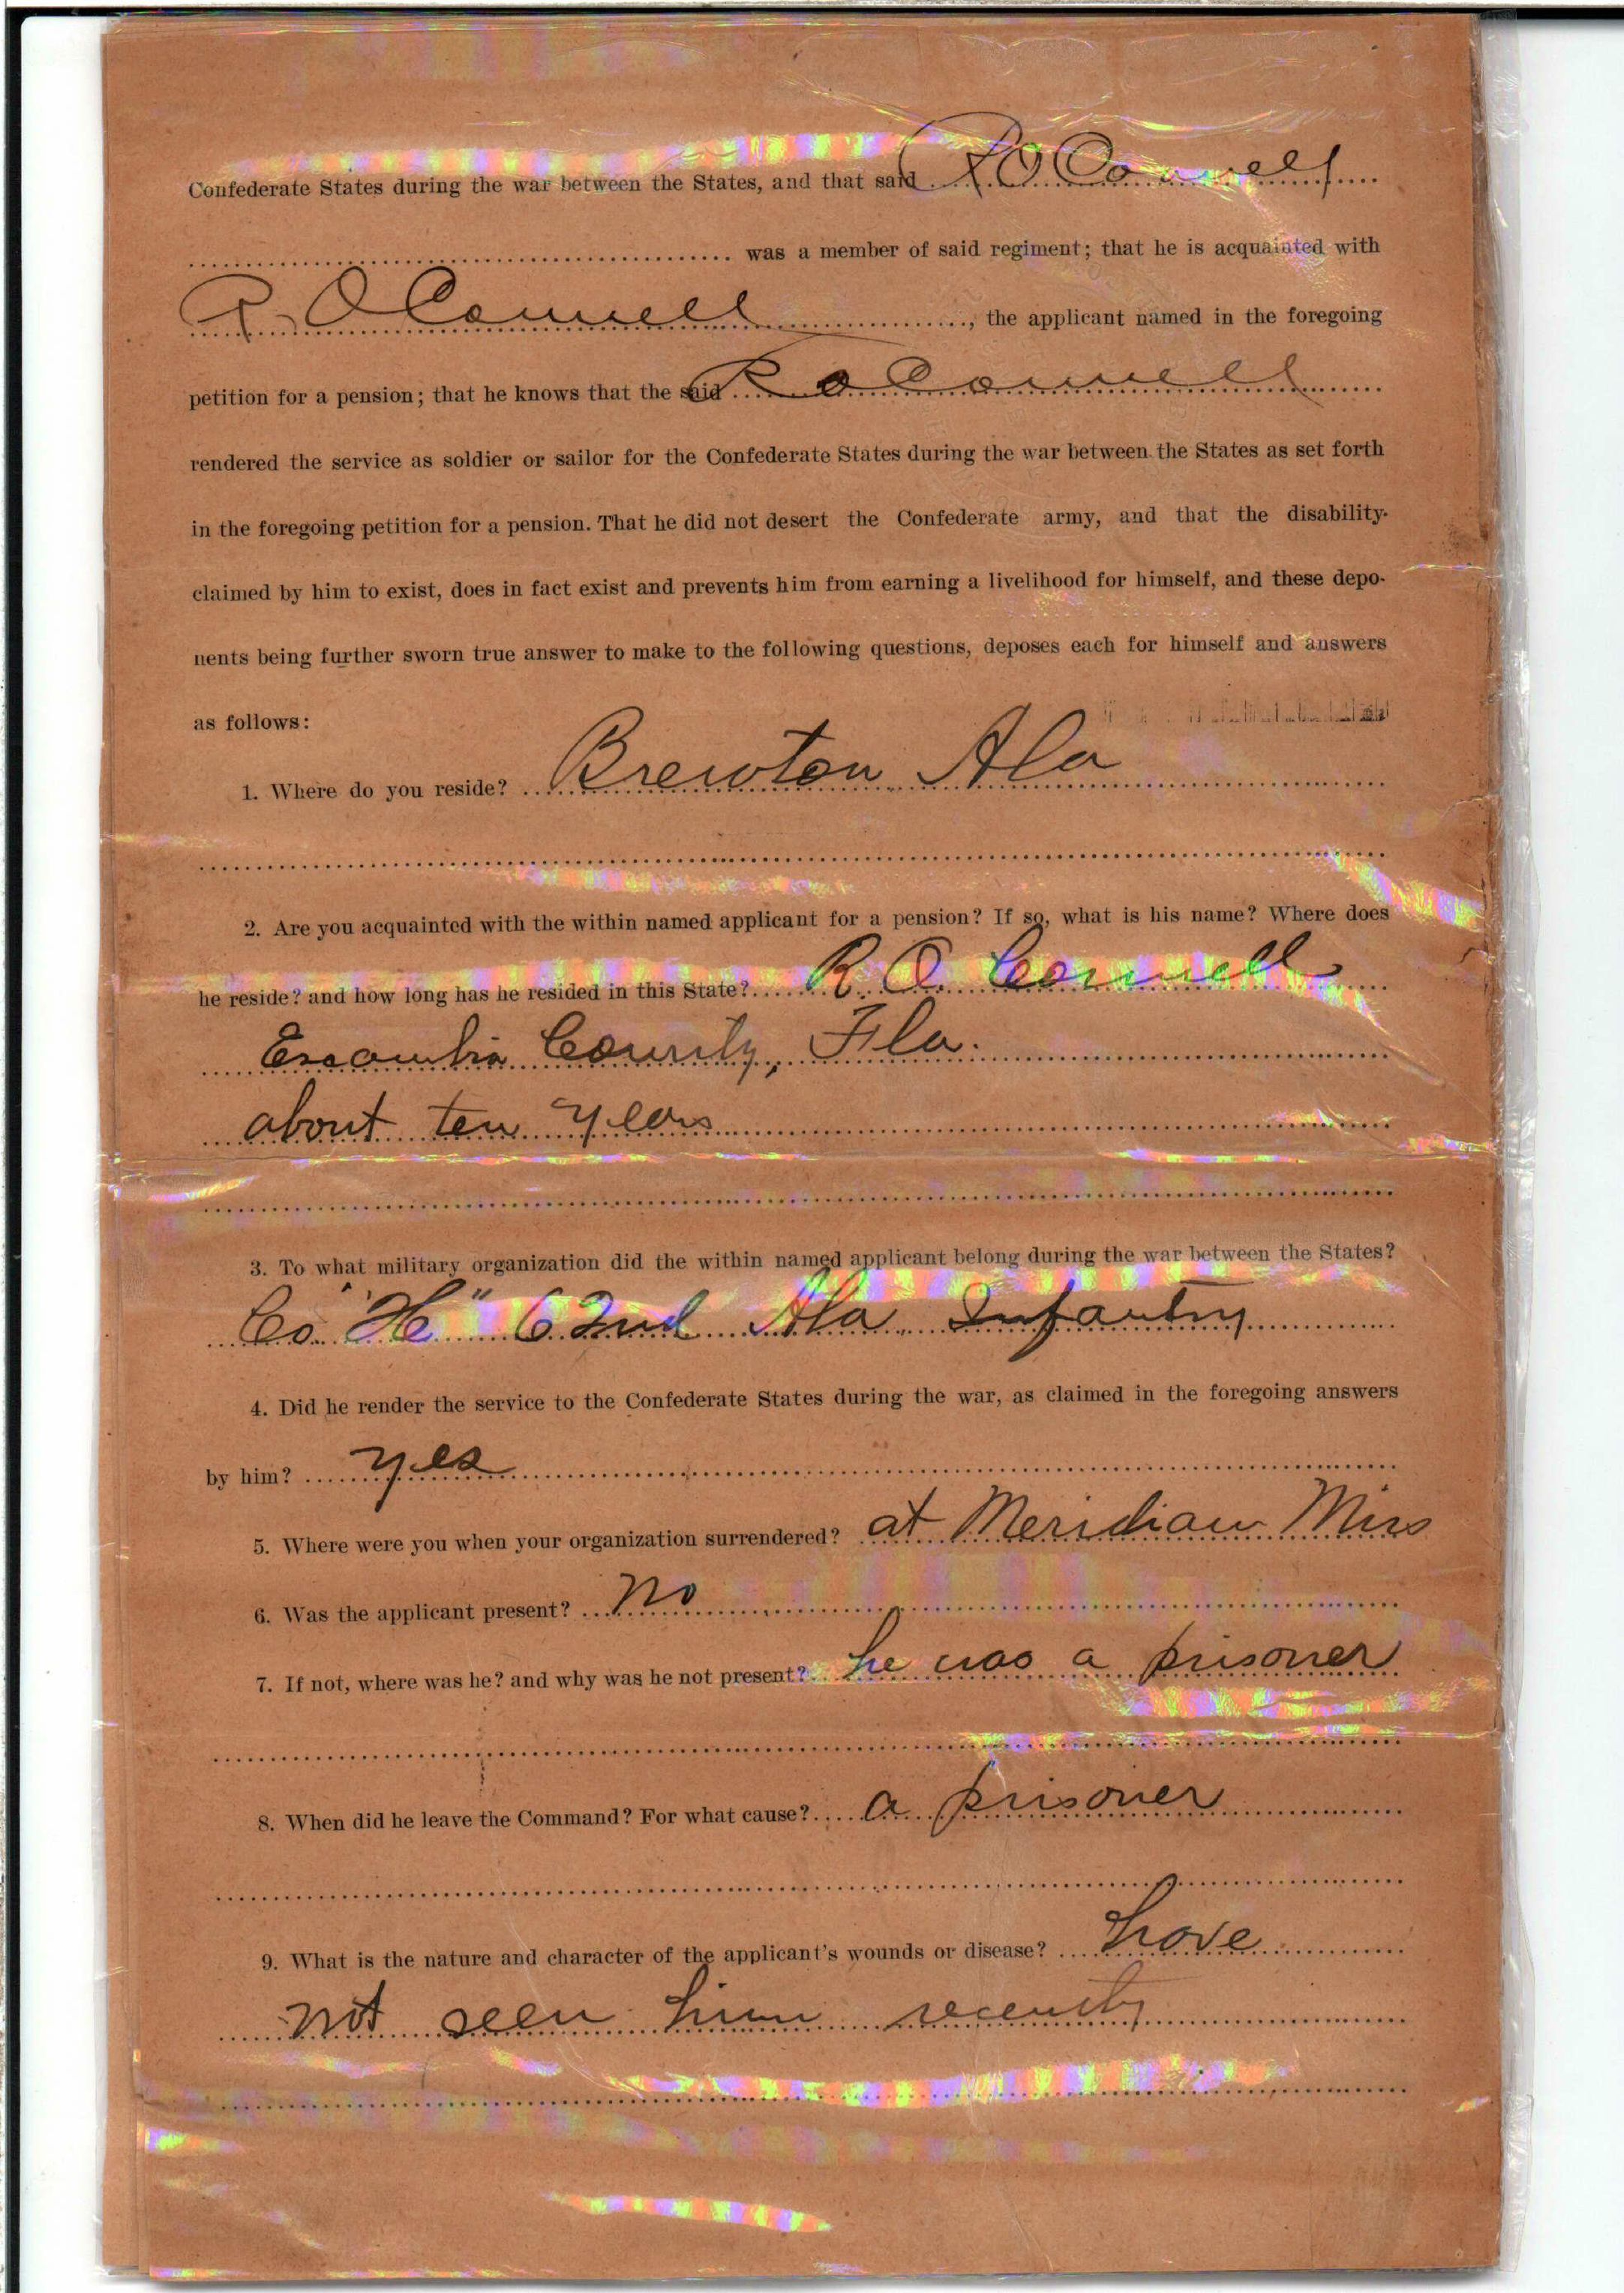 Confederate States during the war between the States, and that said R O Connell
was a member of said regiment; that he is acquainted with
R. O Connell, the applicant named in the foregoing
petition for a pension; that he knows that the said R O Connell
rendered the service as soldier or sailor for the Confederate States during the war between the States as set forth
in the foregoing petition for a pension. That he did not desert the Confederate army, and that the disability
claimed by him to exist, does in fact exist and prevents him from earning a livelihood for himself, and these depo-
nents being further sworn true answer to make to the following questions, deposes each for himself and answers
as follows:
1. Where do you reside? Brewton Ala
2. Are you acquainted with the within named applicant for a pension? If so, what is his name? Where does
he reside? and how long has he resided in this State? R. O. Connell
Escambia County, Fla.
about ten years
3. To what military organization did the within named applicant belong during the war between the States?
Co "H" 62nd Ala. Infantry
4. Did he render the service to the Confederate States during the war, as claimed in the foregoing answers
by him? yes
5. Where were you when your organization surrendered? at Meridian Miss
6. Was the applicant present? no
7. If not, where was he? and why was he not present? he was a prisoner
8. When did he leave the Command? For what cause? a prisoner
9. What is the nature and character of the applicant's wounds or disease? have
not seen him recently